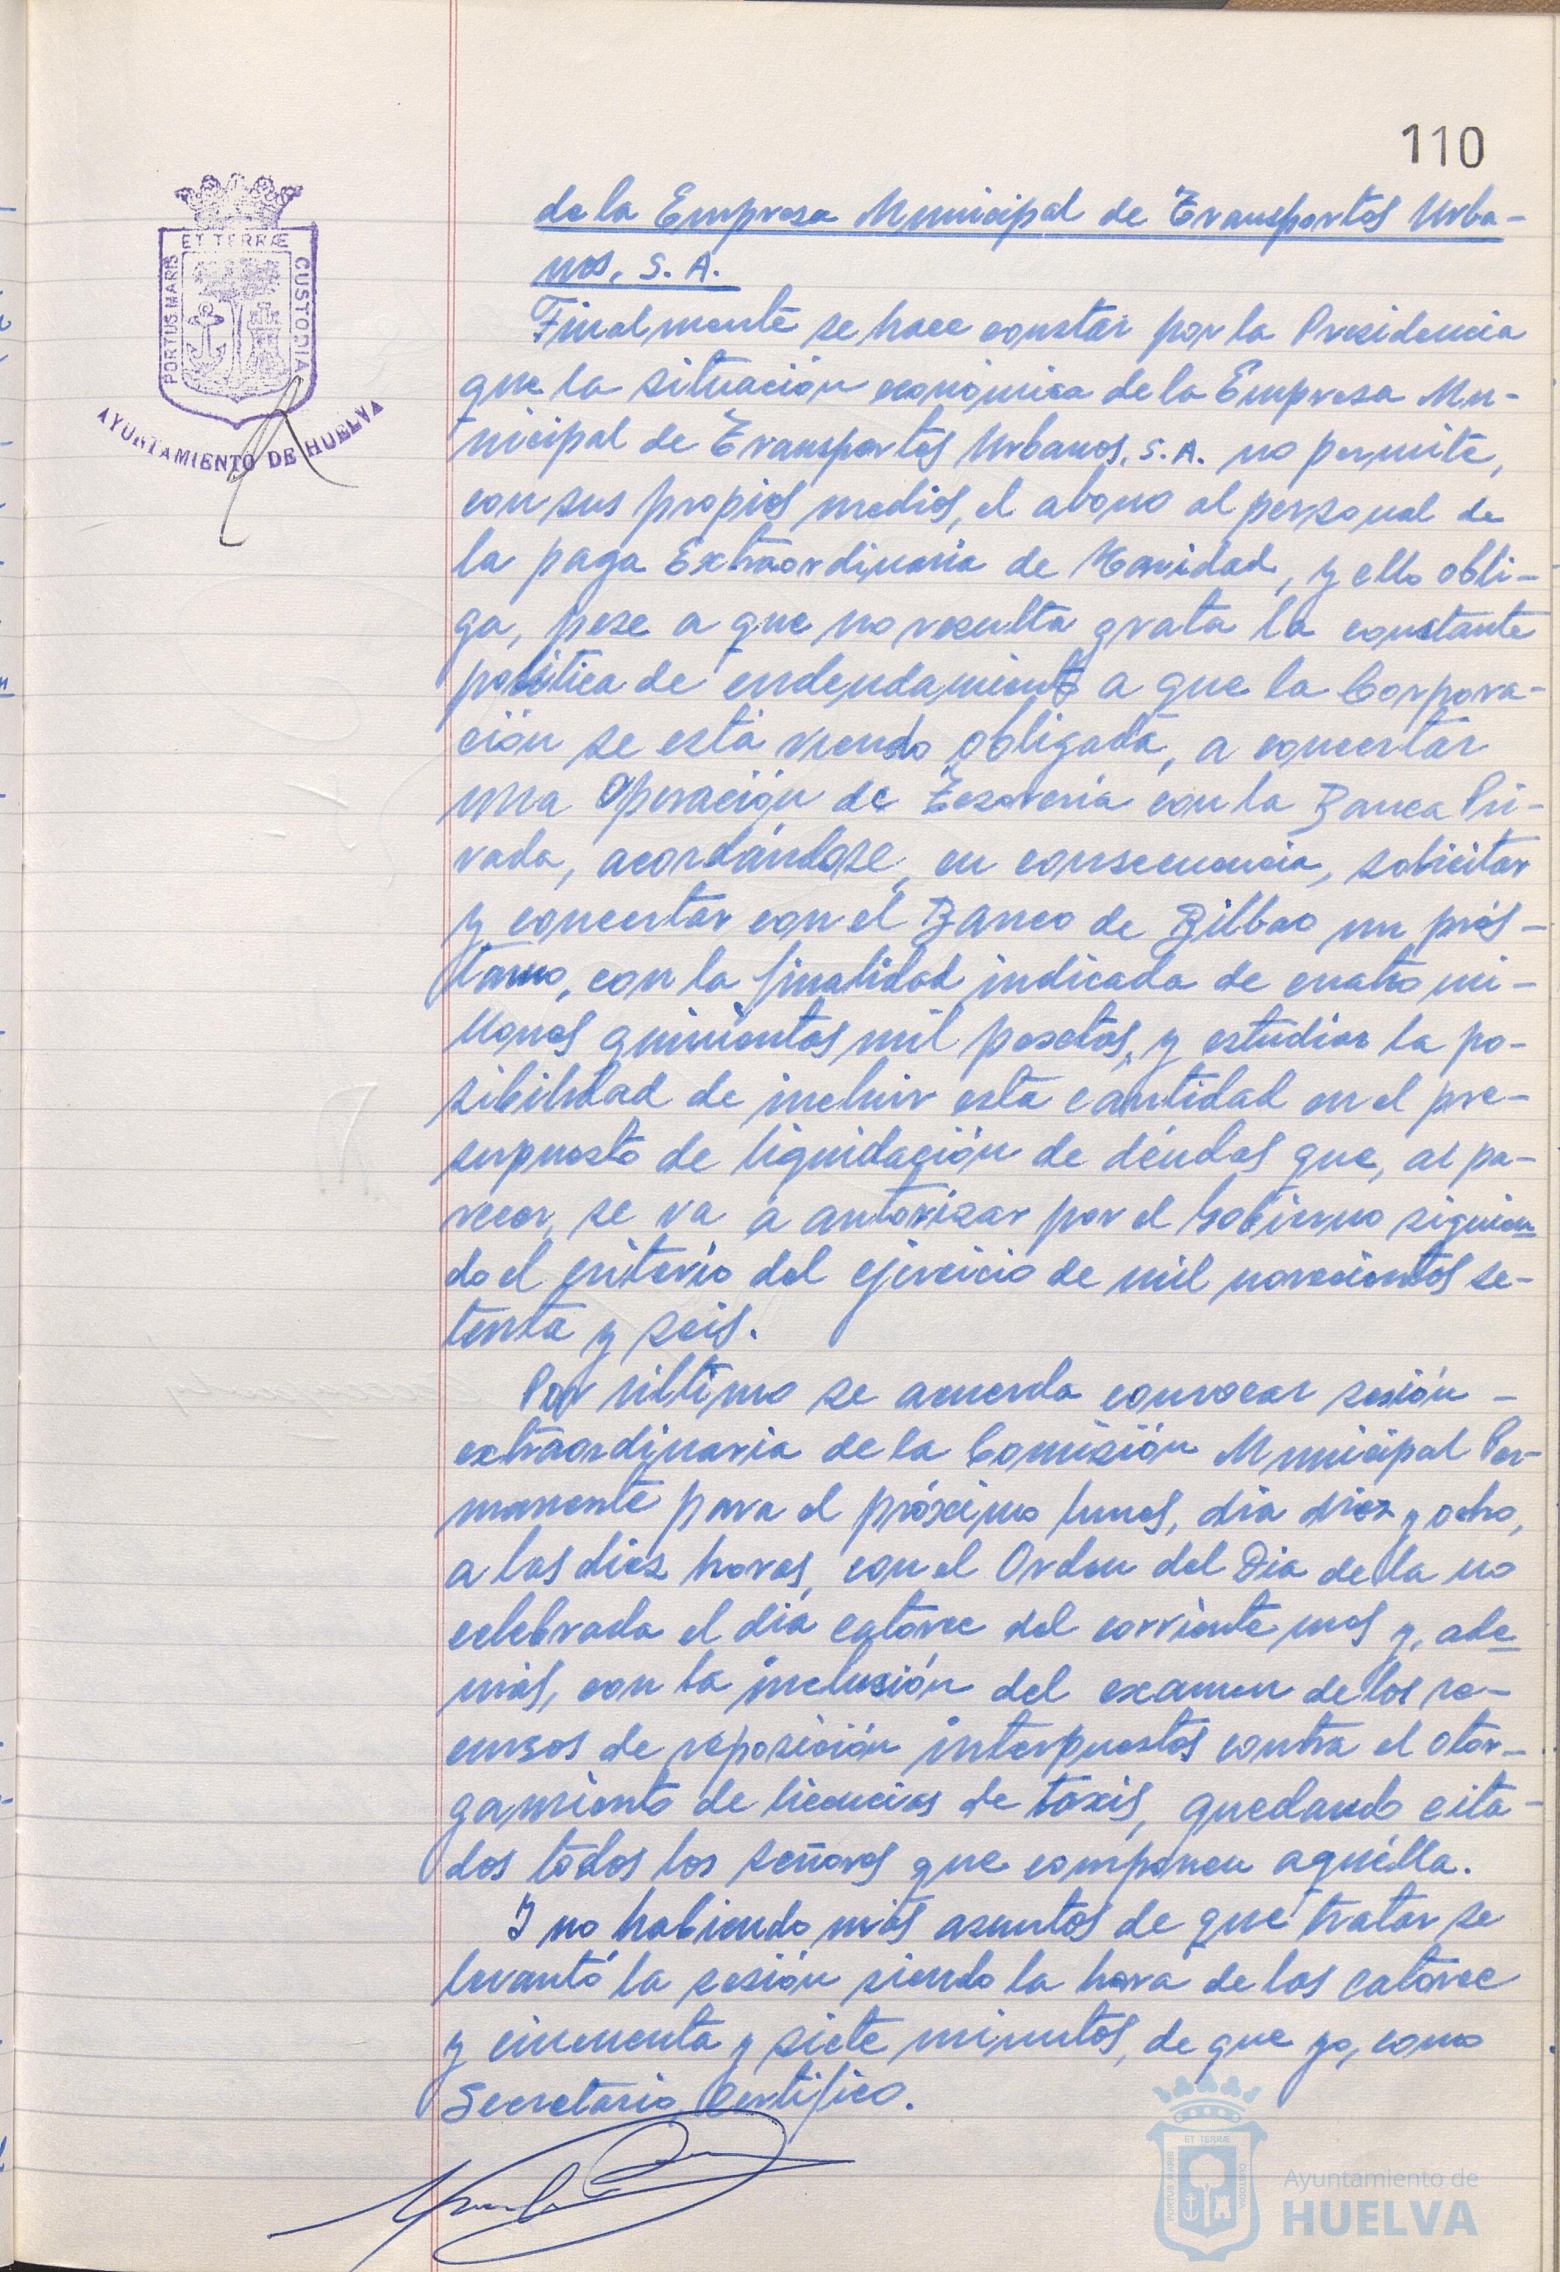 110
ET TERRÆ
PORTUS MARIS
CUSTODIA
AYUNTAMIENTO DE HUELVA
de la Empresa Municipal de Transportes Urba-
nos, S. A.
Finalmente se hace constar por la Presidencia
que la situación económica de la Empresa Mu-
nicipal de Transportes Urbanos, S. A. no permite,
con sus propios medios, el abono al personal de
la paga Extraordinaria de Navidad, y ello obli-
ga, pese a que no resulta grata la constante
política de endeudamiento a que la Corpora-
ción se está viendo obligada, a concertar
una Operación de Tesorería con la Banca Pri-
vada, acordándose, en consecuencia, solicitar
y concertar con el Banco de Bilbao un prés-
tamo, con la finalidad indicada de cuatro mi-
llones quinientas mil pesetas, y estudiar la po-
sibilidad de incluir esta cantidad en el pre-
supuesto de liquidación de déudas que, al pa-
recer, se va a autorizar por el Gobierno siguien
do el criterio del ejercicio de mil novecientos se-
tenta y seis.
Por último se acuerda convocar sesión -
extraordinaria de la Comisión Municipal Per-
manente para el próximo lunes, día diez y ocho,
a las diez horas, con el Orden del Dia de la no
celebrada el día catorce del corriente mes y, ade
más, con la inclusión del examen de los re-
cursos de reposición interpuestos contra el otor-
gamiento de licencias de taxis, quedando cita-
dos todos los señores que componen aquélla.
Y no habiendo más asuntos de que tratar se
levantó la sesión siendo la hora de las catorce
y cincuenta y siete minutos, de que yo, como
Secretario, Certifico.
ET TERRÆ
PORTUS MARIS
CUSTODIA
Ayuntamiento de
HUELVA